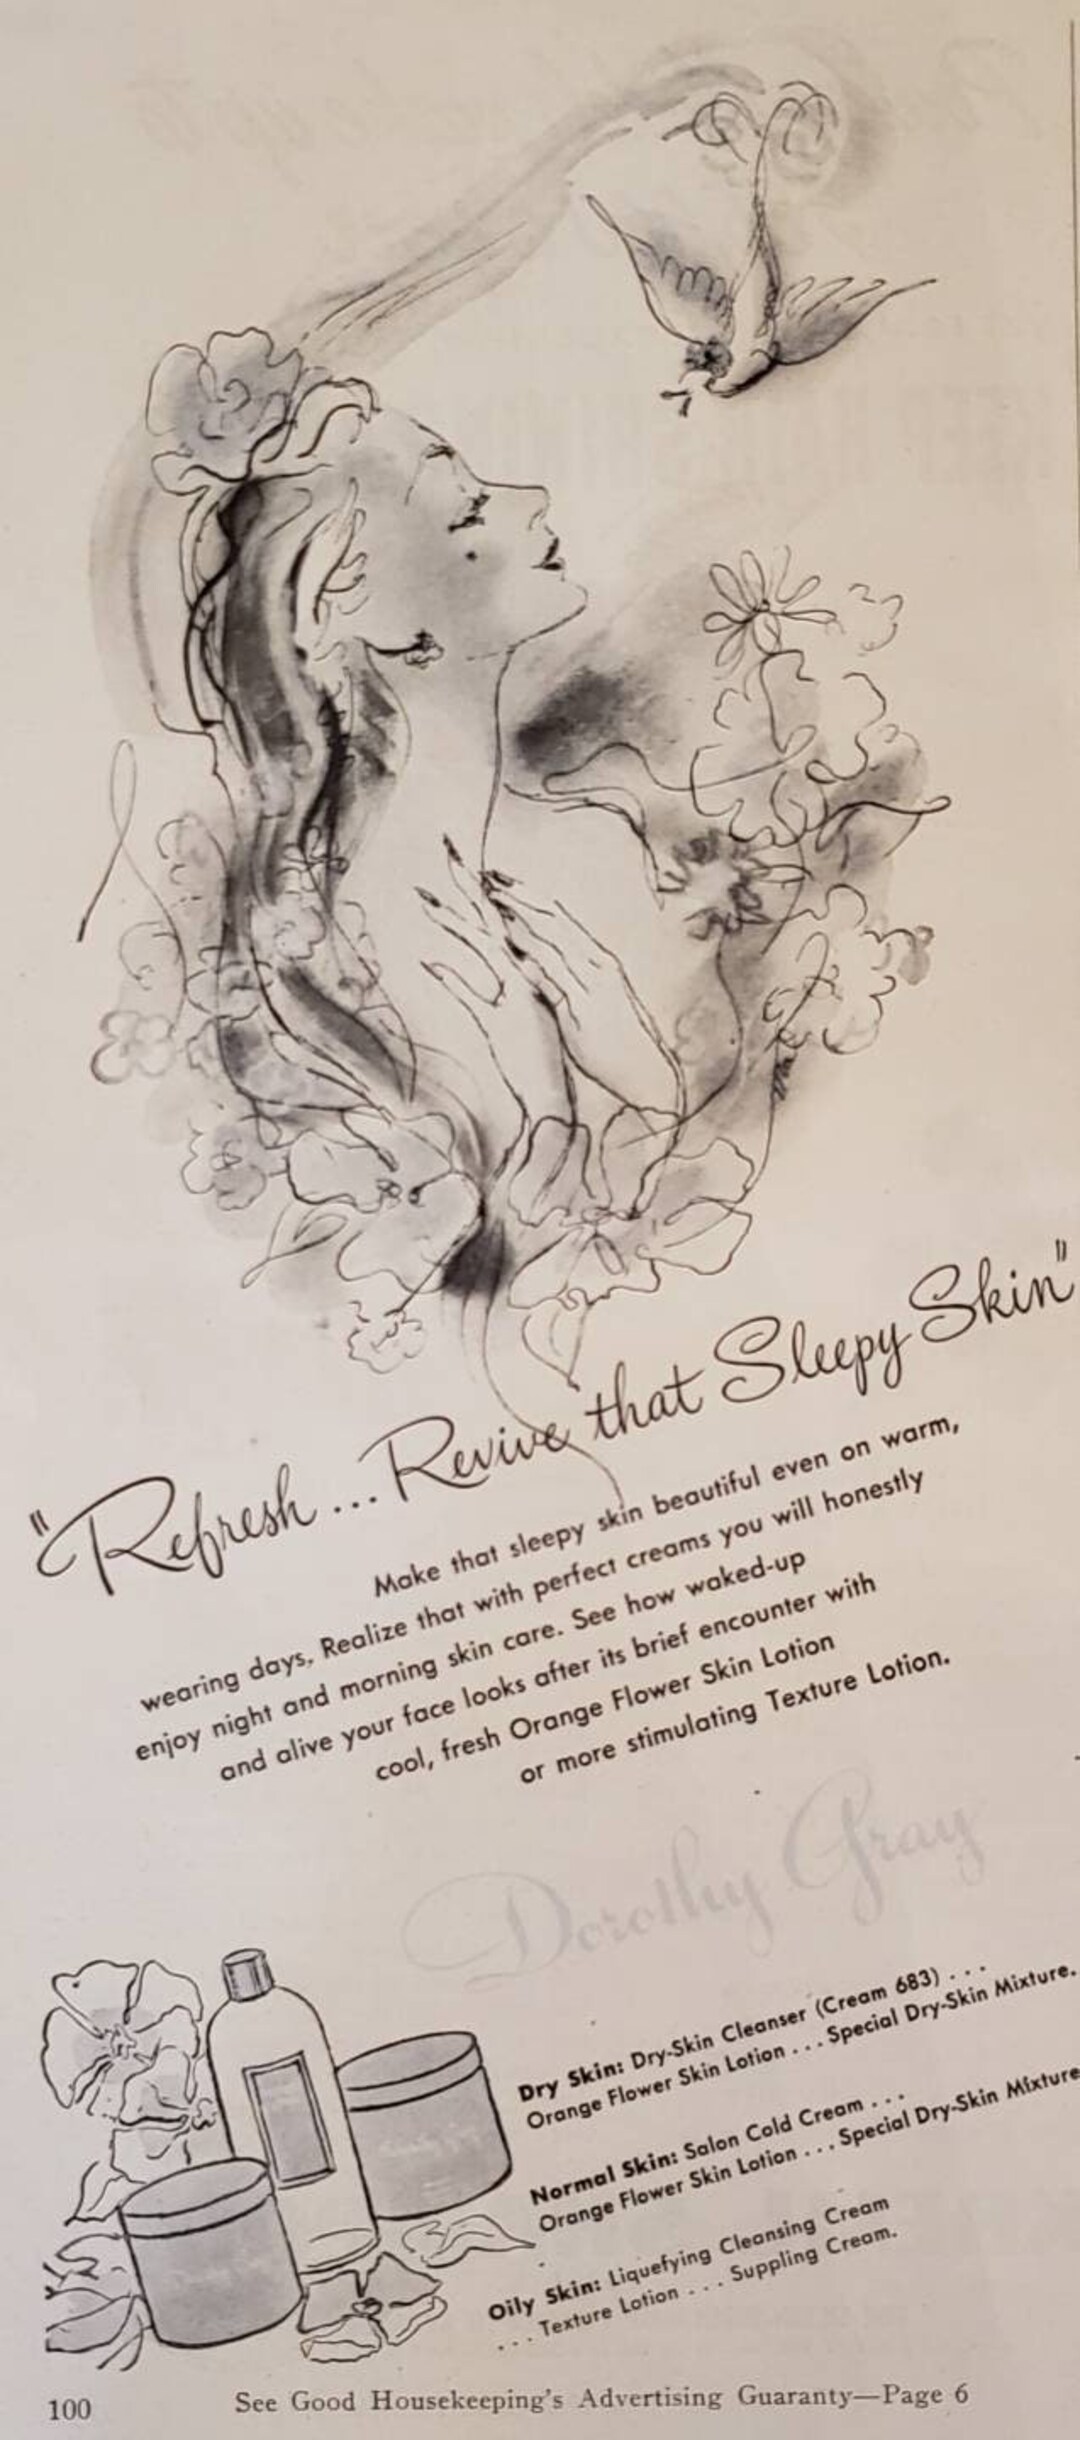 "Refresh ... Revive that Sleepy Skin"
Make that sleepy skin beautiful even on warm,
wearing days. Realize that with perfect creams you will honestly
enjoy night and morning skin care. See how waked-up
and alive your face looks after its brief encounter with
cool, fresh Orange Flower Skin Lotion
or more stimulating Texture Lotion.
Dorothy Gray
Dry Skin: Dry-Skin Cleanser (Cream 683) . . .
Orange Flower Skin Lotion . . . Special Dry-Skin Mixture.
Normal Skin: Salon Cold Cream . . .
Orange Flower Skin Lotion . . . Special Dry-Skin Mixture
Oily Skin: Liquefying Cleansing Cream
. . . Texture Lotion . . . Suppling Cream.
100
See Good Housekeeping's Advertising Guaranty—Page 6